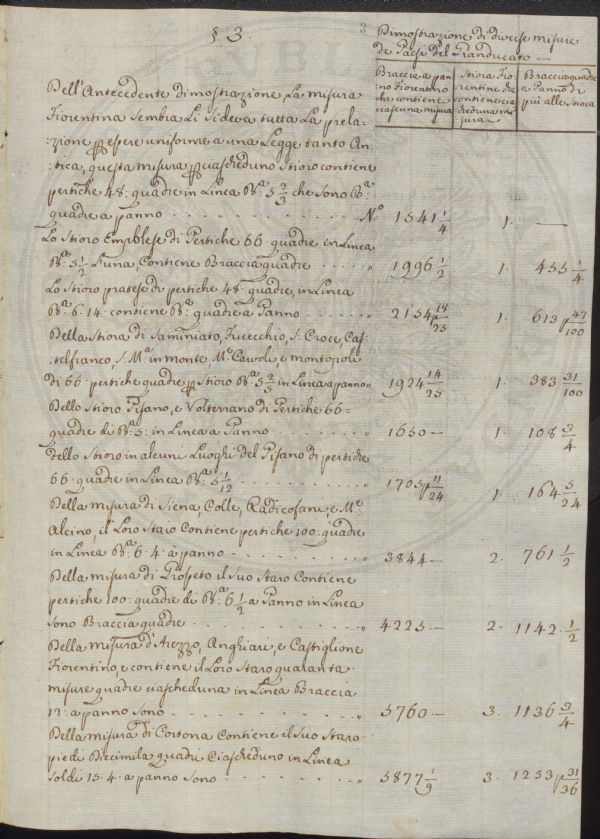 § 3.
3
Dimostrazione di diverse misure
de Paesi del Granducato
Braccia a pan=
=no Fiorentino
che contiene
ciascuna misura
Stiora Fio=
rentine che
contiene cia
=scheduna mi=
sura
Braccia quadre
a Panno di
più alle Stiora
Dell'Antecedente dimostrazione, La misura
Fiorentina sembra Li Si deva tutta La prela=
=zione per essere uniforme a una Legge tanto An=
=tica, questa misura per ciascheduno Stioro contiene
pertiche 48: quadre in Linea Bra 5 2/3 che sono Bra
quadre a panno . . . . . . . . . . No 1541 1/4 1. —
Lo Stioro Empolese di Pertiche 66 quadre in Linea
Bra 5 1/2 L'una, Contiene Braccia quadre . . . . . " 1996 1/2 1. 455 1/4
Lo Stioro pratese di pertiche 48 quadre, in Linea
Bra 6. 14 contiene Bra quadre a Panno . . . . . " 2154 18/25 1. 613 47/100
Della Stiora di Saminiato, Fucecchio, S. Croce, Cas=
=telfranco, S. Ma in monte Me Carvoli, e montopoli
di 66 pertiche quadre per Stioro Bra 5 2/5 in Linea a panno " 1924 14/25 1. 383 31/100
Dello Stioro Pisano, e Volterrano di Pertiche 66
quadre di Bra 5: in Linea a Panno . . . . . . " 1650 — 1. 108 3/4
Dello Stioro in alcuni Luoghi del Pisano di pertiche
66 quadre in Linea Bra 5 1/12 . . . . . . . . " 1705 11/24 1. 164 5/24
Della misura di Siena, Colle, Radicofani, e Me
Alcino, il Loro Staio Contiene pertiche 100: quadre
in Linea Bra 6. 4. a panno . . . . . . . . " 3844 — 2. 761 1/2
Della misura di Grosseto il Suo Staro Contiene
pertiche 100: quadre di Bra 6 1/2 a Panno in Linea
Sono Braccia quadre . . . . . . . . . " 4225 — 2. 1142 1/2
Della misura d'Arezzo, Anghiari, e Castiglione
Fiorentino, e contiene il Loro Staro quaranta
misure quadre ciascheduna in Linea Braccia
12: a panno sono . . . . . . . . . . " 5760 — 3. 1136 3/4
Della misura di Cortona Contiene il Suo Staro
piedi Diecimila quadri Ciascheduno in Linea
Soldi 15. 4. a panno Sono . . . . . . . . " 5877 1/9 3. 1253 31/36